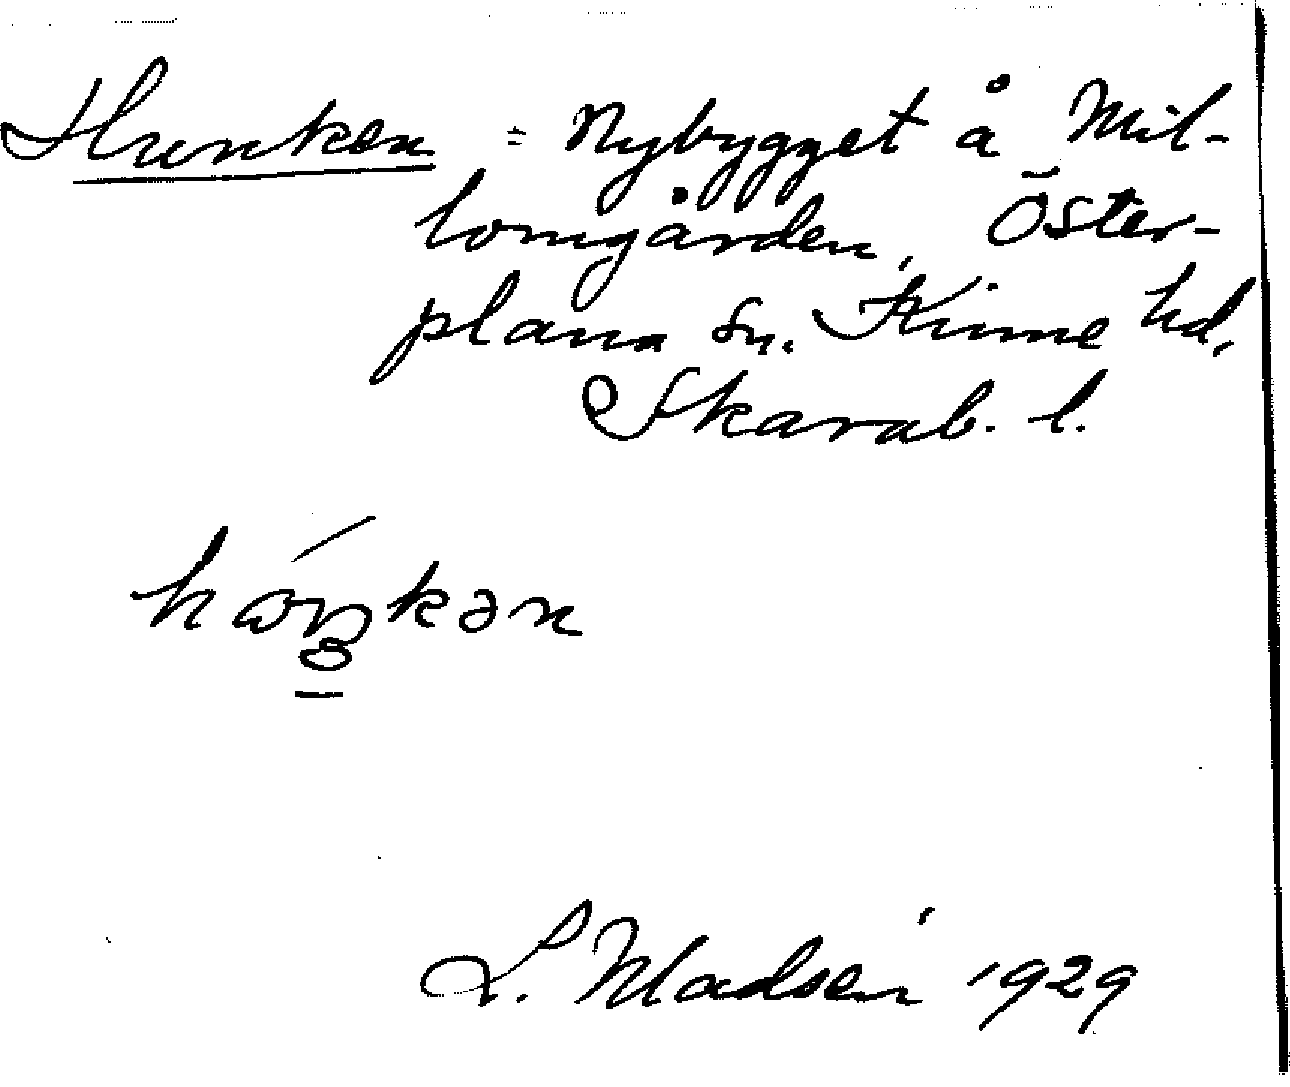 Hunken = Nybygget å Mil-
lomgården, Öster-
plana sn. Kinne hd,
Skarab. l.
håŋkən
L. Madsén 1929